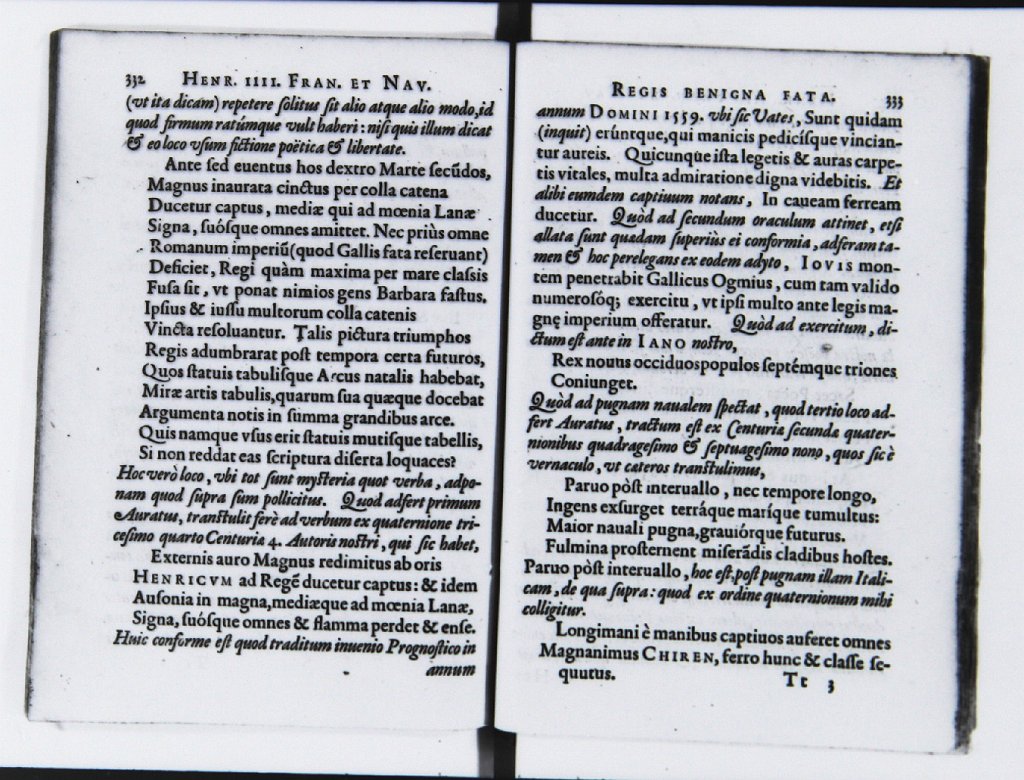 332 HENR. IIII. FRAN. ET NAV.
(vt ita dicam) repetere solitus sit alio atque alio modo, id
quod firmum ratúmque vult haberi: nisi quis illum dicat
& eo loco vsum fictione poëtica & libertate.
Ante sed euentus hos dextro Marte secũdos,
Magnus inaurata cinctus per colla catena
Ducetur captus, mediæ qui ad mœnia Lanæ
Signa, suósque omnes amittet. Nec priùs omne
Romanum imperiũ(quod Gallis fata reseruant)
Deficiet, Regi quàm maxima per mare classis
Fusa sit, vt ponat nimios gens Barbara fastus.
Ipsius & iussu multorum colla catenis
Vincta resoluantur. Talis pictura triumphos
Regis adumbrarat post tempora certa futuros,
Quos statuis tabulisque Arcus natalis habebat,
Miræ artis tabulis,quarum sua quæque docebat
Argumenta notis in summa grandibus arce.
Quis namque vsus erit statuis mutisque tabellis,
Si non reddat eas scriptura diserta loquaces?
Hoc verò loco, vbi tot sunt mysteria quot verba, adpo-
nam quod supra sum pollicitus. Quod adfert primum
Auratus, transtulit ferè ad verbum ex quaternione tri-
cesimo quarto Centuria 4. Autoris nostri, qui sic habet,
Externis auro Magnus redimitus ab oris
HENRICVM ad Regẽ ducetur captus: & idem
Ausonia in magna,mediæque ad mœnia Lanæ,
Signa, suósque omnes & flamma perdet & ense.
Huic conforme est quod traditum inuenio Prognostico in
annum
REGIS BENIGNA FATA. 333
annum DOMINI 1559. vbi sic Vates, Sunt quidam
(inquit) erúntque,qui manicis pedicisque vincian-
tur aureis. Quicunque ista legetis & auras carpe-
tis vitales, multa admiratione digna videbitis. Et
alibi eumdem captiuum notans, In caueam ferream
ducetur. Quòd ad secundum oraculum attinet, etsi
allata sunt quædam superiùs ei conformia, adferam ta-
men & hoc perelegans ex eodem adyto, IOVIS mon-
tem penetrabit Gallicus Ogmius, cum tam valido
numerosóq; exercitu, vt ipsi multo ante legis ma-
gnę imperium offeratur. Quòd ad exercitum, di-
ctum est ante in IANO nostro,
Rex nouus occiduos populos septémque triones
Coniunget.
Quòd ad pugnam naualem spectat, quod tertio loco ad-
fert Auratus, tractum est ex Centuria secunda quater-
nionibus quadragesimo & septuagesimo nono, quos sic è
vernaculo, vt cæteros transtulimus,
Paruo pòst interuallo, nec tempore longo,
Ingens exsurget terráque maríque tumultus:
Maior nauali pugna,grauiórque futurus.
Fulmina prosternent miserãdis cladibus hostes.
Paruo pòst interuallo, hoc est,post pugnam illam Itali-
cam, de qua supra: quod ex ordine quaternionum mihi
colligitur.
Longimani è manibus captiuos auferet omnes
Magnanimus CHIREN, ferro hunc & classe se-
quutus.
Tt 3